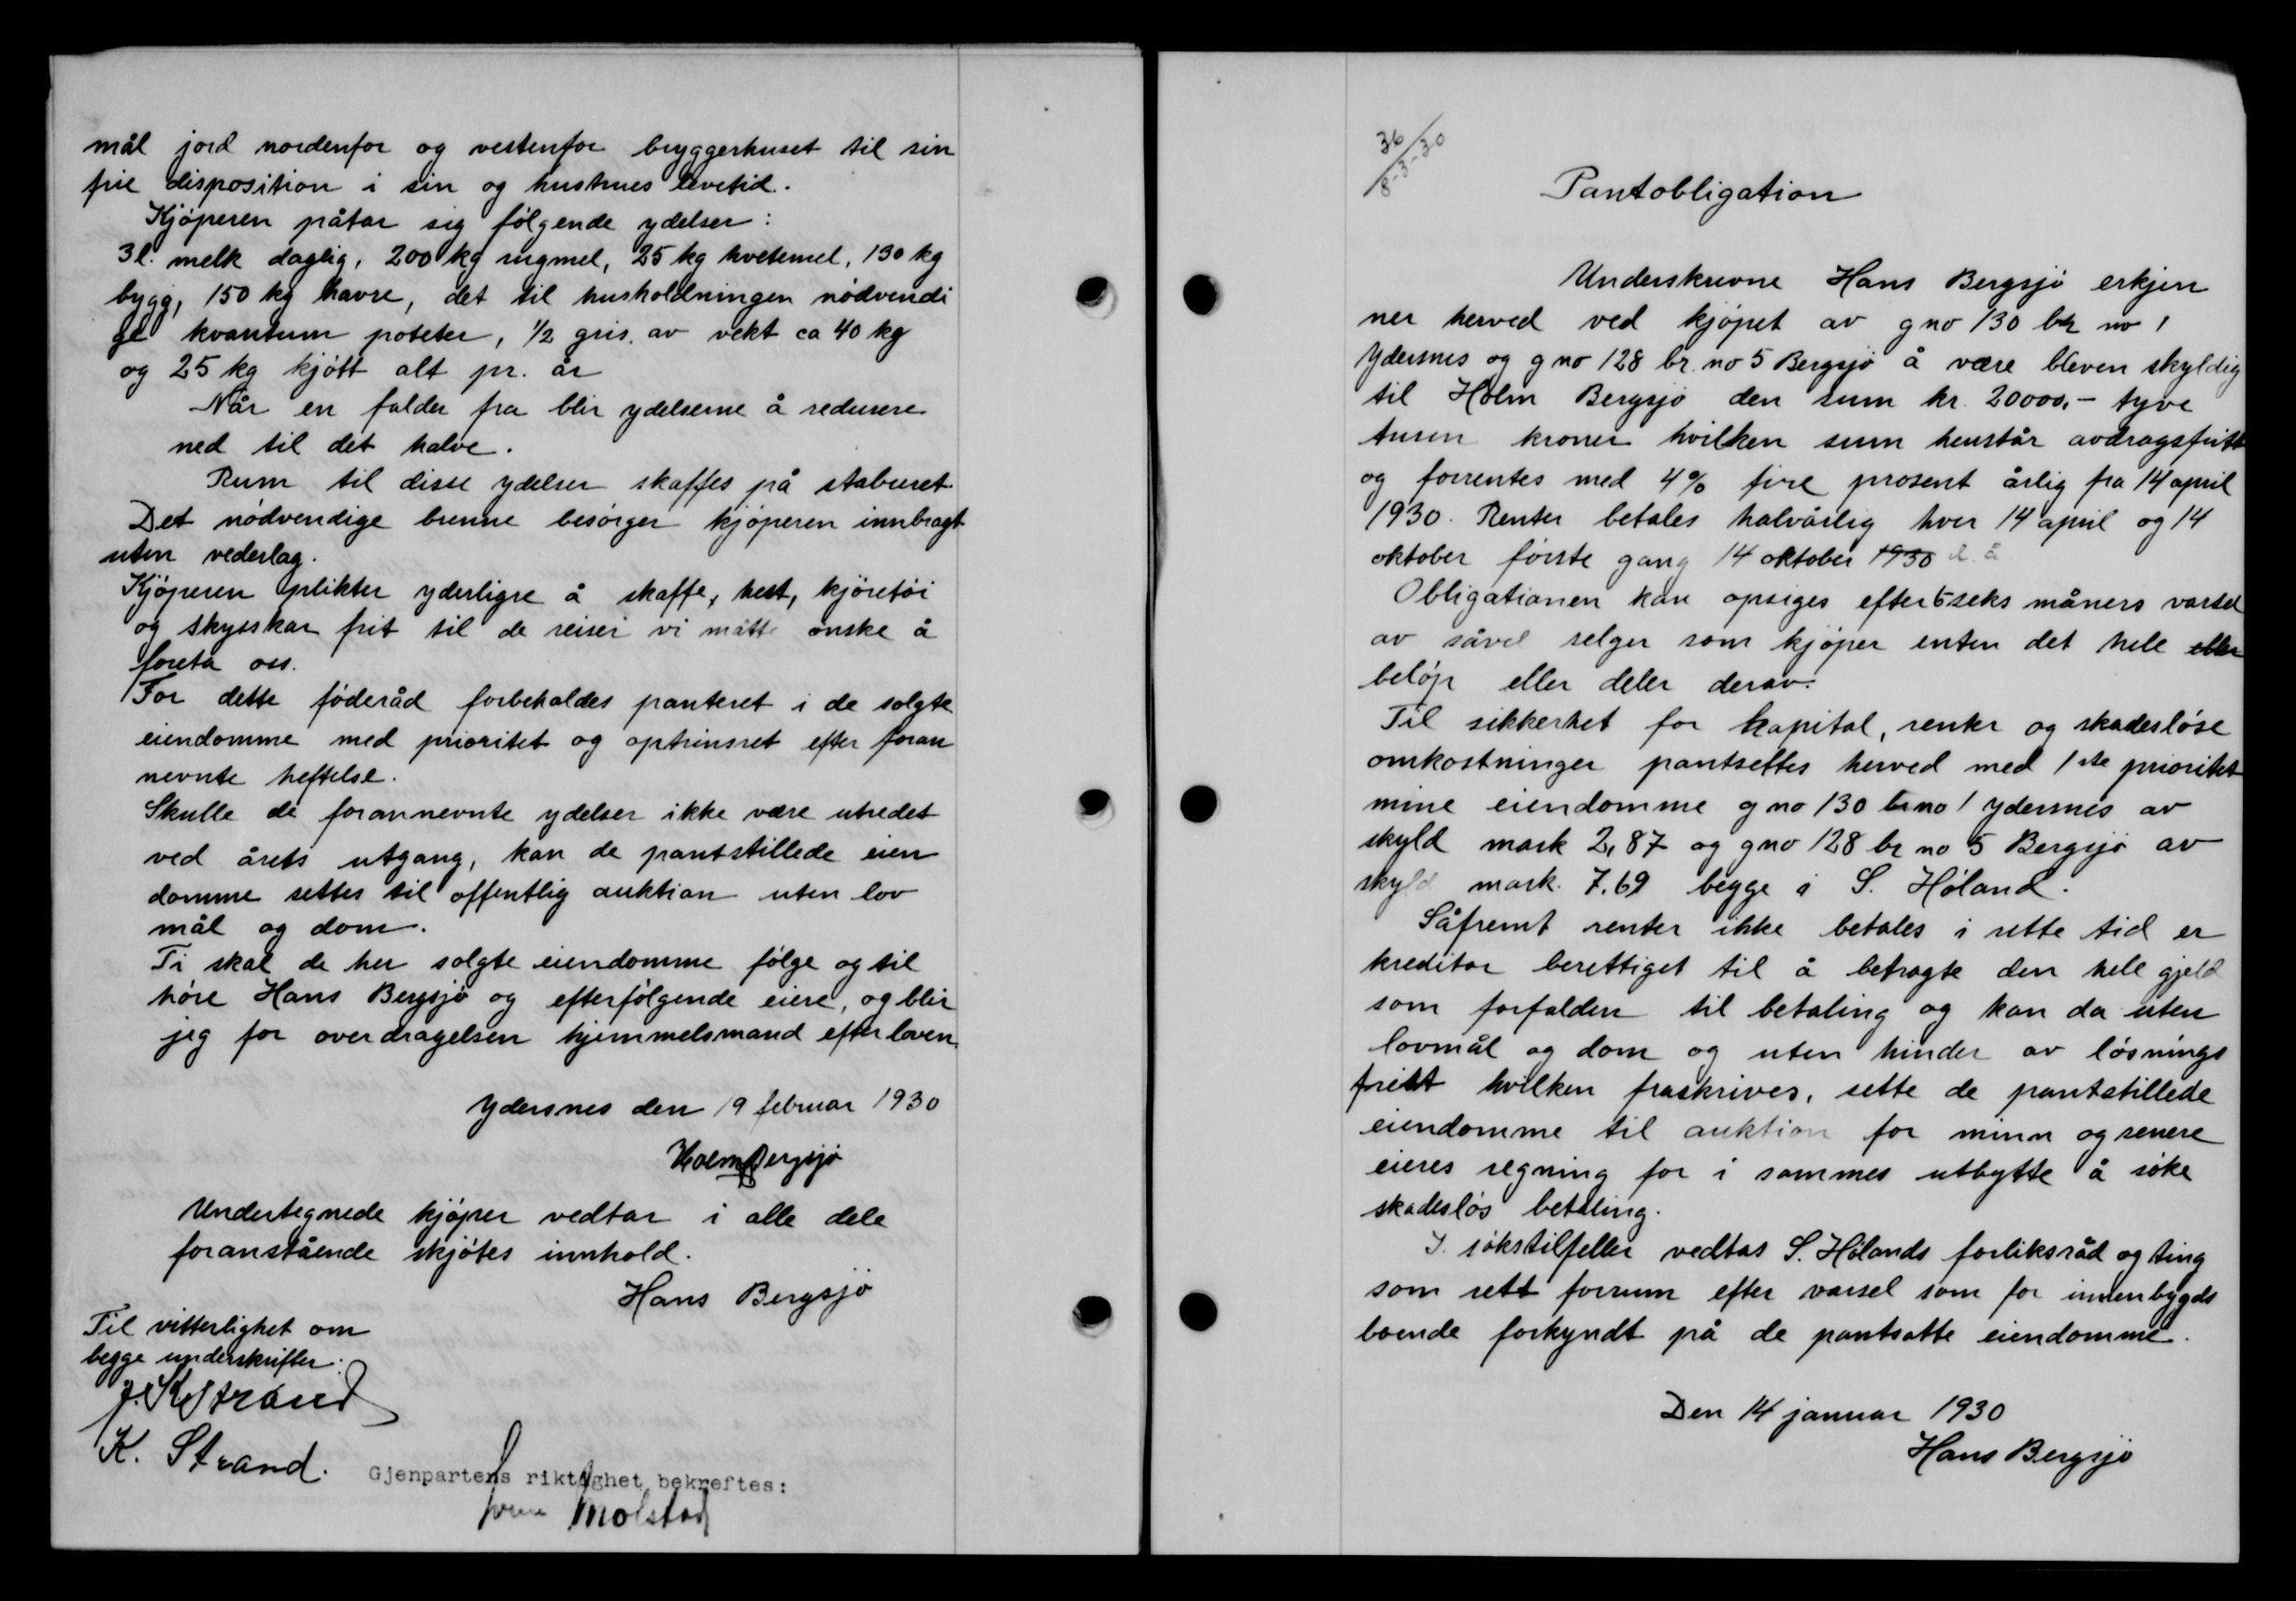 mål jord nordenfor og vestenfor bryggerhuset til sin
frie disposition i sin og hustrues levetid.
Kjøperen påtar sig følgende ydelser:
3 l. melk daglig, 200 kg rugmel, 25 kg hvetemel, 130 kg
bygg, 150 kg havre, det til husholdningen nødvendi
ge kvantum poteter, 1/2 gris. av vekt ca 40 kg
og 25 kg kjøtt alt pr. år
Når en falder fra blir ydelserne å redusere
ned til det halve.
Rum til disse ydelser skaffes på staburet
Det nødvendige brenne besørger kjøperen innbragt
uten vederlag.
Kjøperen plikter yderligre å skaffe, hest, kjøretøi
og skysskar frit til de reiser vi måtte ønske å
foreta oss.
For dette føderåd forbeholdes panteret i de solgte
eiendomme med prioritet og optrinsret efter foran
nevnte heftelse.
Skulle de forannevnte ydelser ikke være utredet
ved årets utgang, kan de pantstillede eien
domme settes til offentlig auktion uten lov
mål og dom.
Ti skal de her solgte eiendomme følge og til
høre Hans Bergsjø og efterfølgende eiere, og blir
jeg for overdragelsen hjemmelsmand efter loven.
Ydersnes den 19 februar 1930
Holm Bergsjø
Undertegnede kjøper vedtar i alle dele
foranstående skjøtes innhold.
Hans Bergsjø
Til vitterlighet om
begge underskrifter:
J. K. Strand
K. Strand.
Gjenpartens riktighet bekreftes:
Molstad
36/8-3-30
Pantobligation
Underskrevne Hans Bergsjø erkjen
ner herved ved kjøpet av g no 130 br no 1
Ydersnes og g no 128 br. no 5 Bergsjø å være bleven skyldig
til Holm Bergsjø den sum kr. 20000,- tyve
tusen kroner hvilken sum henstår avdragsfritt
og forrentes med 4% fire prosent årlig fra 14 april
1930. Renter betales halvårlig hver 14 april og 14
oktober første gang 14 oktober 1930 d. å
Obligationen kan opsiges efter 6 seks måners varsel
av såvel selger som kjøper enten det hele eller
beløp eller deler derav.
Til sikkerhet for kapital, renter og skadesløse
omkostninger pantsettes herved med 1ste prioritet
mine eiendomme g no 130 br no 1 Ydersnes av
skyld mark 2,87 og g no 128 br no 5 Bergsjø av
skyld mark. 7.69 begge i S. Høland.
Såfremt renter ikke betales i rette tid er
kreditor berettiget til å betragte den hele gjeld
som forfalden til betaling og kan da uten
lovmål og dom og uten hinder av løsnings
frist hvilken fraskrives, sette de pantstillede
eiendomme til auktion for minn og senere
eieres regning for i sammes utbytte å søke
skadesløs betaling.
I. søkstilfeller vedtas S. Hølands forliksråd og ting
som rett forrum efter varsel som for innenbygds
boende forkyndt på de pantsatte eiendomme.
Den 14 januar 1930
Hans Bergsjø